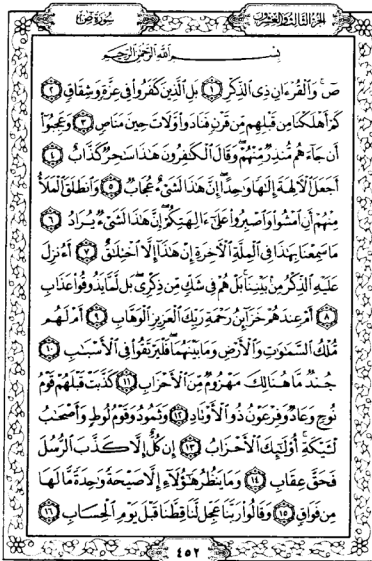 الجزء الثالث والعشرون
سورة ص
بِسْمِ اللَّهِ الرَّحْمَٰنِ الرَّحِيمِ
صٓ وَالْقُرْءَانِ ذِي الذِّكْرِ ١ بَلِ الَّذِينَ كَفَرُوا فِي عِزَّةٍ وَشِقَاقٍ ٢
كَمْ أَهْلَكْنَا مِن قَبْلِهِم مِّن قَرْنٍ فَنَادَوا وَّلَاتَ حِينَ مَنَاصٍ ٣ وَعَجِبُوٓا
أَن جَآءَهُم مُّنذِرٌ مِّنْهُمْ وَقَالَ الْكَٰفِرُونَ هَٰذَا سَٰحِرٌ كَذَّابٌ ٤
أَجَعَلَ الْآلِهَةَ إِلَٰهًا وَٰحِدًا إِنَّ هَٰذَا لَشَيْءٌ عُجَابٌ ٥ وَانطَلَقَ الْمَلَأُ
مِنْهُمْ أَنِ امْشُوا وَاصْبِرُوا عَلَىٰٓ ءَالِهَتِكُمْ إِنَّ هَٰذَا لَشَيْءٌ يُرَادُ ٦
مَا سَمِعْنَا بِهَٰذَا فِي الْمِلَّةِ الْآخِرَةِ إِنْ هَٰذَآ إِلَّا اخْتِلَٰقٌ ٧ أَءُنزِلَ
عَلَيْهِ الذِّكْرُ مِنۢ بَيْنِنَا بَلْ هُمْ فِي شَكٍّ مِّن ذِكْرِي بَل لَّمَّا يَذُوقُوا عَذَابِ
٨ أَمْ عِندَهُمْ خَزَآئِنُ رَحْمَةِ رَبِّكَ الْعَزِيزِ الْوَهَّابِ ٩ أَمْ لَهُم
مُّلْكُ السَّمَٰوَٰتِ وَالْأَرْضِ وَمَا بَيْنَهُمَا فَلْيَرْتَقُوا فِي الْأَسْبَٰبِ ١٠
جُندٌ مَّا هُنَالِكَ مَهْزُومٌ مِّنَ الْأَحْزَابِ ١١ كَذَّبَتْ قَبْلَهُمْ قَوْمُ
نُوحٍ وَعَادٌ وَفِرْعَوْنُ ذُو الْأَوْتَادِ ١٢ وَثَمُودُ وَقَوْمُ لُوطٍ وَأَصْحَٰبُ
لْـَٔيْكَةِ أُولَٰٓئِكَ الْأَحْزَابُ ١٣ إِن كُلٌّ إِلَّا كَذَّبَ الرُّسُلَ
فَحَقَّ عِقَابِ ١٤ وَمَا يَنظُرُ هَٰٓؤُلَآءِ إِلَّا صَيْحَةً وَٰحِدَةً مَّا لَهَا
مِن فَوَاقٍ ١٥ وَقَالُوا رَبَّنَا عَجِّل لَّنَا قِطَّنَا قَبْلَ يَوْمِ الْحِسَابِ ١٦
٤٥٢